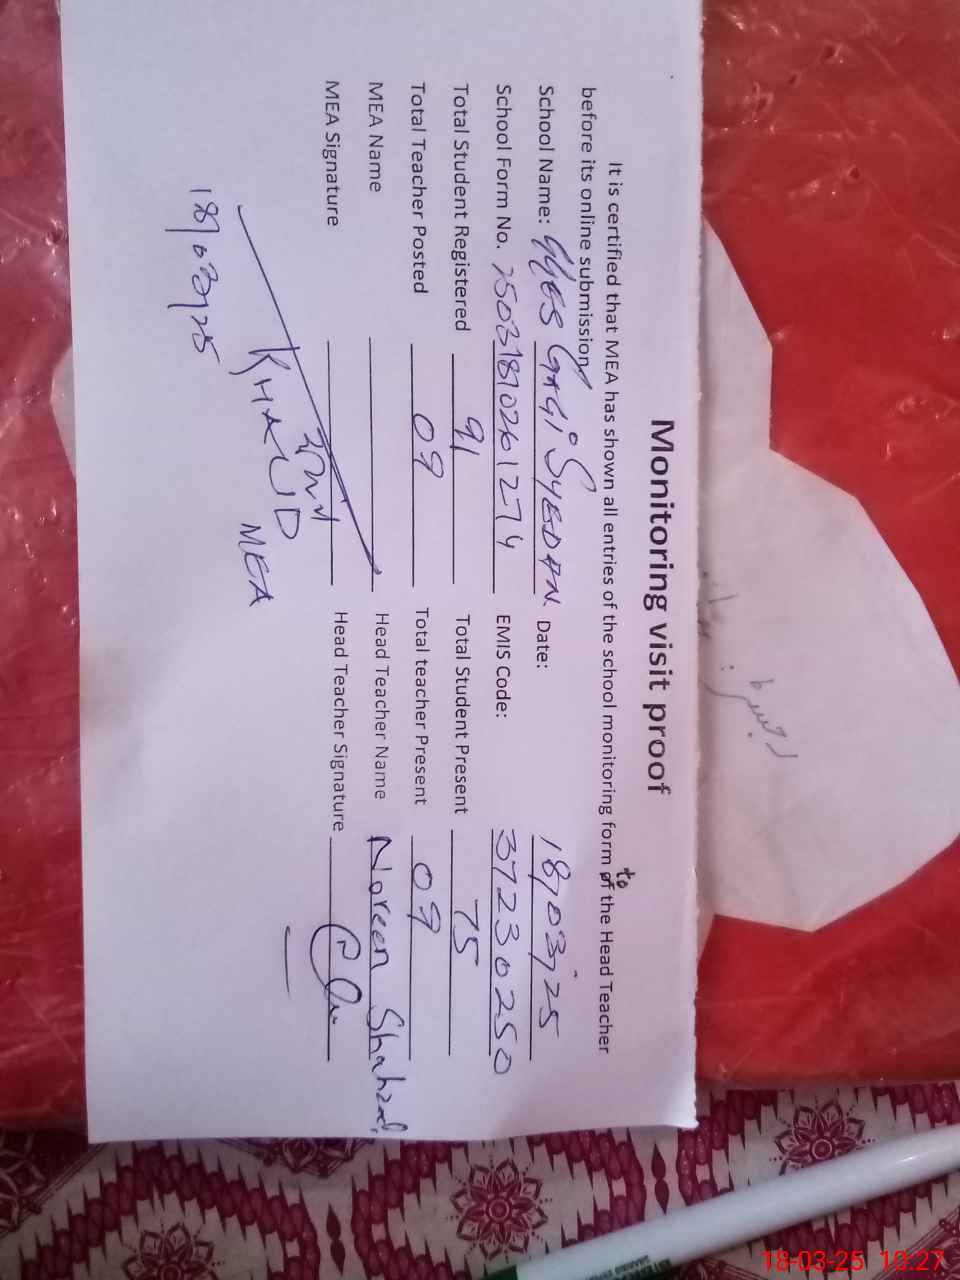 Monitoring visit proof
It is certified that MEA has shown all entries of the school monitoring form of to the Head Teacher
before its online submission
School Name: GGES GAGI SYEDAN. Date: 18/03/25
School Form No. 25031810261274 EMIS Code: 37230250
Total Student Registered 91 Total Student Present 75
Total Teacher Posted 09 Total teacher Present 09
MEA Name Head Teacher Name Noreen Shahzad
MEA Signature Head Teacher Signature
KHALID
MEA
18/03/25
18-03-25 10:27